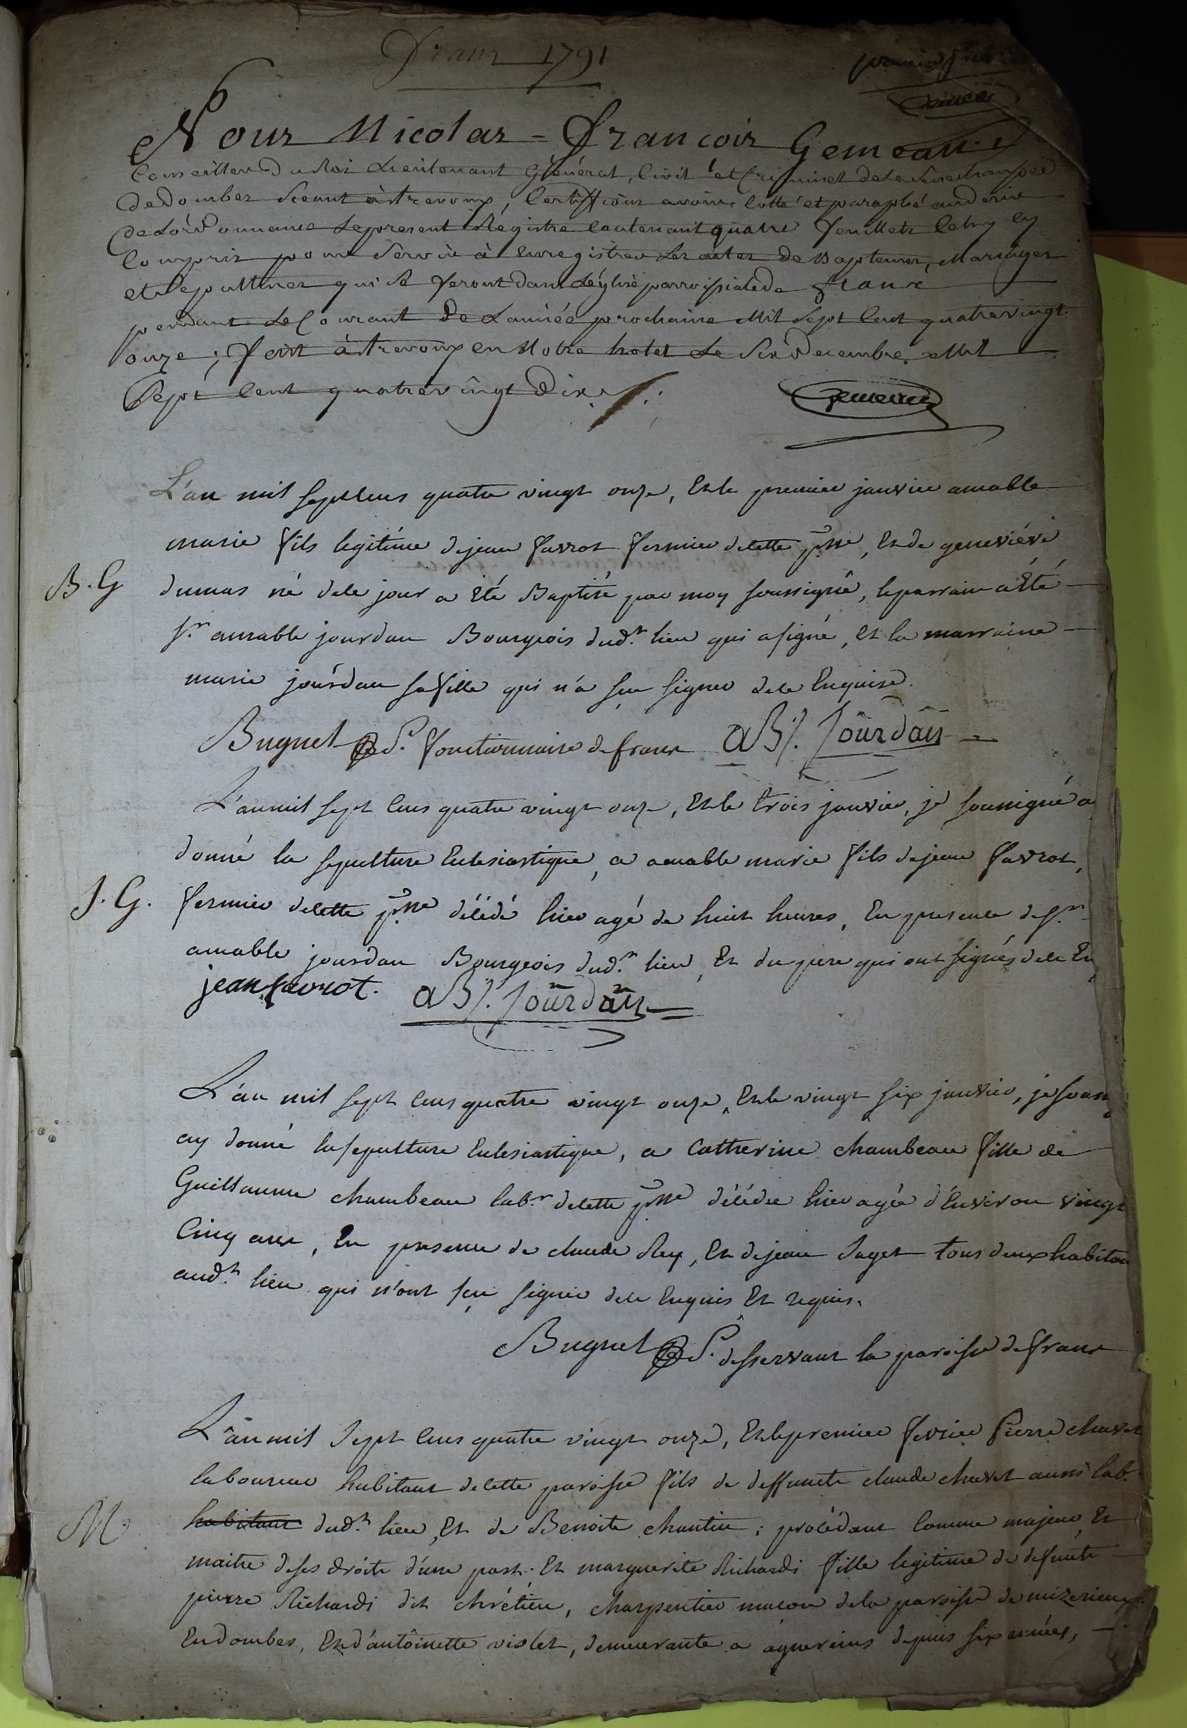 Franc 1791
premier
Gemeau
Nous Nicolas = François Gemeau
Conseiller du Roi Lieutenant Général, Civil et Criminel de la Senechaussée
de Dombes Sceant à Trevoux, Certiffions avoir Cotté et paraphé
de L'ordonnance Le present Registre Contenant quatre feuillets Celuy cy
Compris pour Servir à Enregistrer Les actes De Baptemes, Mariages
et Sepultures qui Se Feront dans L'église parroissiale de Franc
pendant Le Courant De L'année prochaine Mil Sept Cent quatre vingt
onze ; Fait à Trevoux en Notre hotel Le Six Decembre Mil
Sept Cent quatre vingt Dix
Gemeau
L'an mil sept cens quatre vingt onze, Et le premier janvier amable
marie fils legitime de jean favrot fermier de cette psse, Et de geneviéve
B. G
dumas né de ce jour a été Baptisé par moy soussigné, le parrain a Eté
sr amable jourdan Bourgeois dudt lieu qui a signé, Et la marraine
marie jourdan sa fille qui n'a sçu signer de ce Enquise.
Buguet P. fonctionnaire de franc aBl. Jourdan
L'an mil sept cens quatre vingt onze, Et le trois janvier, je soussigné a
donné la sepulture Eclesiastique, a amable marie fils de jean favrot,
J. G.
fermier de cette psse décédé hier agé de huit heures, En presence de sr
amable jourdan Bourgeois dudt lieu, Et du pere qui ont signés de ce En
jean favrot. aBl. Jourdan
L'an mil sept cens quatre vingt onze, Et le vingt six janvier, je souss
ay donné la sepulture Eclesiastique, a Catherine chambeau fille de
Guillaume chambeau labr de cette psse décédée hier agée d'Environ vingt
Cinq ans, En presence de claude Rey, Et de jean Saget tous deux habitan
audt lieu qui n'ont sçu signer de ce Enquis Et requis.
Buguet P. desservant la paroisse de franc
L'an mil Sept Cens quatre vingt onze, Et le premier fevrier Pierre chavet
laboureur habitant de cette paroisse fils de deffunct claude chavet aussi lab.
M
habitant dudt lieu, Et de Benoite chantin ; procédant Comme majeur Et
maitre de ses droits d'une part. Et marguerite Richardi fille legitime de defunte
pierre Richardi dit chrétien, charpentier maçon de la paroisse de mizerieux
En dombes, Et d'antoinette violet, demeurante a agnereins depuis six années,